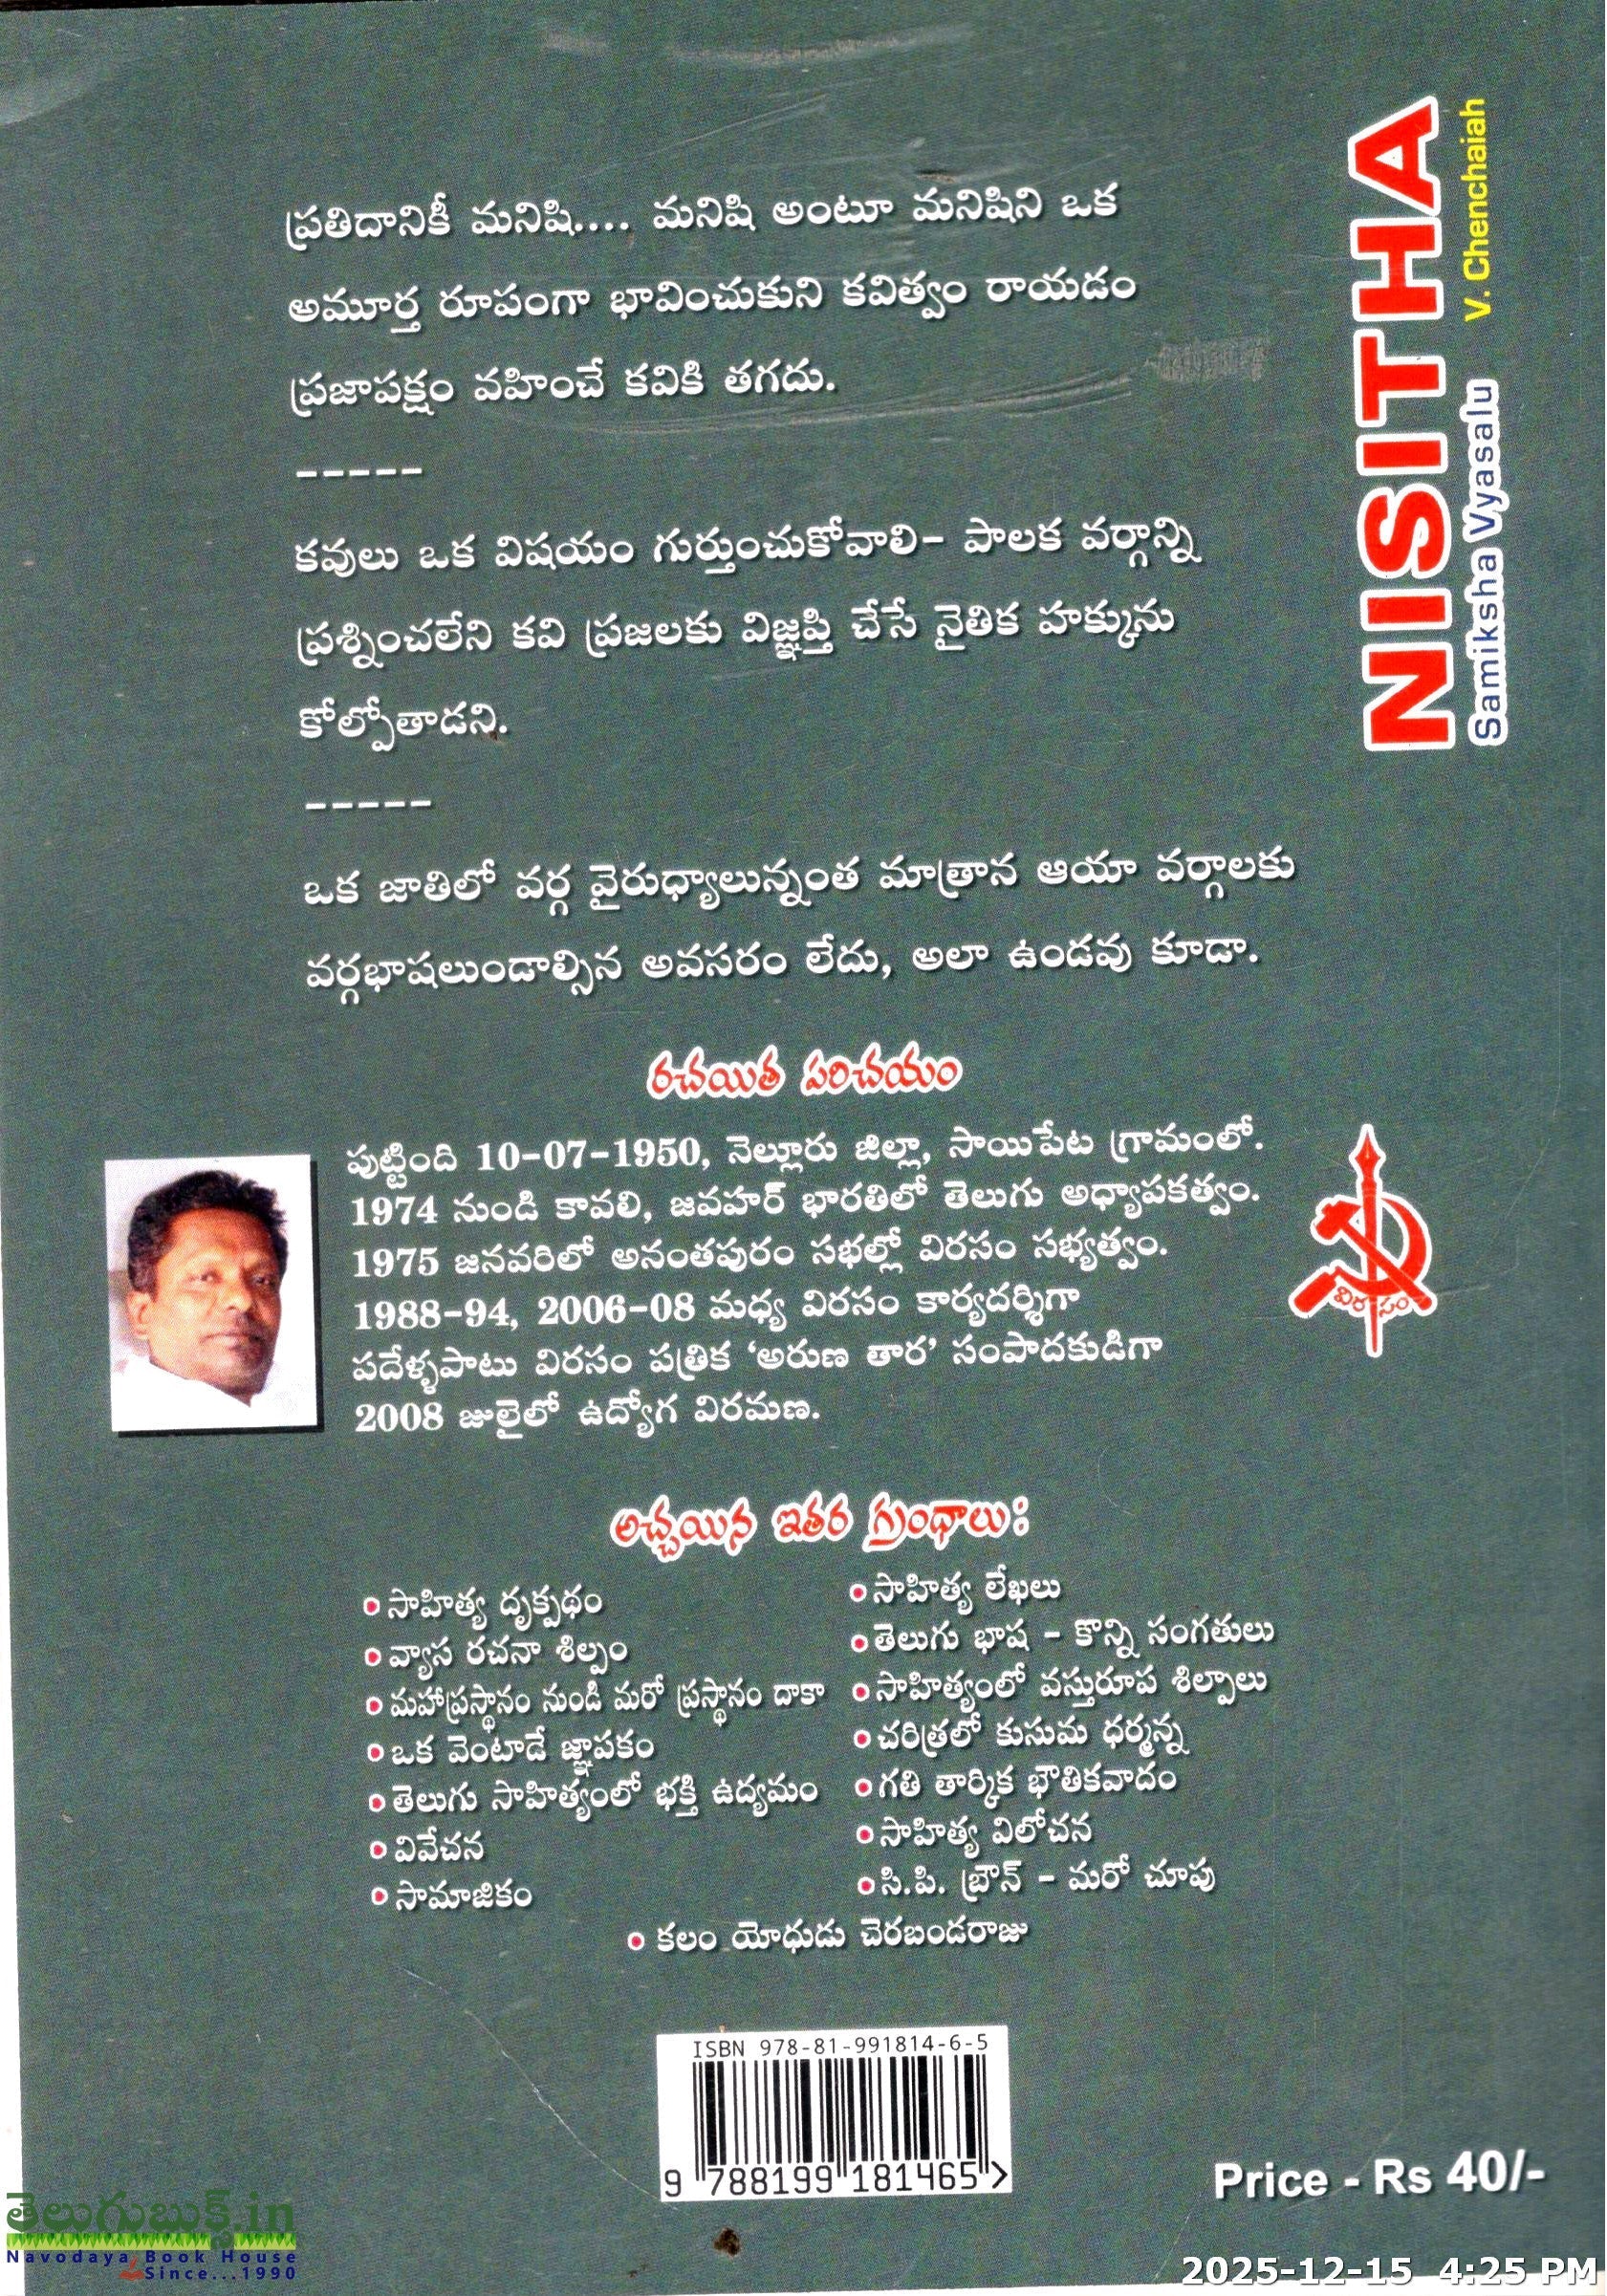 ప్రతిదానికీ మనిషి.... మనిషి అంటూ మనిషిని ఒక
అమూర్త రూపంగా భావించుకుని కవిత్వం రాయడం
ప్రజాపక్షం వహించే కవికి తగదు.
-----
కవులు ఒక విషయం గుర్తుంచుకోవాలి- పాలక వర్గాన్ని
ప్రశ్నించలేని కవి ప్రజలకు విజ్ఞప్తి చేసే నైతిక హక్కును
కోల్పోతాడని.
-----
ఒక జాతిలో వర్గ వైరుధ్యాలున్నంత మాత్రాన ఆయా వర్గాలకు
వర్గభాషలుండాల్సిన అవసరం లేదు, అలా ఉండవు కూడా.
NISITHA
Samiksha Vyasalu
V. Chenchaiah
రచయిత పరిచయం
పుట్టింది 10-07-1950, నెల్లూరు జిల్లా, సాయిపేట గ్రామంలో.
1974 నుండి కావలి, జవహర్ భారతిలో తెలుగు అధ్యాపకత్వం.
1975 జనవరిలో అనంతపురం సభల్లో విరసం సభ్యత్వం.
1988-94, 2006-08 మధ్య విరసం కార్యదర్శిగా
పదేళ్ళపాటు విరసం పత్రిక ‘అరుణ తార’ సంపాదకుడిగా
2008 జులైలో ఉద్యోగ విరమణ.
విరసం
అచ్చయిన ఇతర గ్రంథాలు:
• సాహిత్య దృక్పథం
• వ్యాస రచనా శిల్పం
• మహాప్రస్థానం నుండి మరో ప్రస్థానం దాకా
• ఒక వెంటాడే జ్ఞాపకం
• తెలుగు సాహిత్యంలో భక్తి ఉద్యమం
• వివేచన
• సామాజికం
• సాహిత్య లేఖలు
• తెలుగు భాష - కొన్ని సంగతులు
• సాహిత్యంలో వస్తురూప శిల్పాలు
• చరిత్రలో కుసుమ ధర్మన్న
• గతి తార్కిక భౌతికవాదం
• సాహిత్య విలోచన
• సి.పి. బ్రౌన్ - మరో చూపు
• కలం యోధుడు చెరబండరాజు
ISBN 978-81-991814-6-5
9 788199 181465 >
Price - Rs 40/-
తెలుగుబుక్స్.in
Navodaya Book House
Since...1990
2025-12-15 4:25 PM